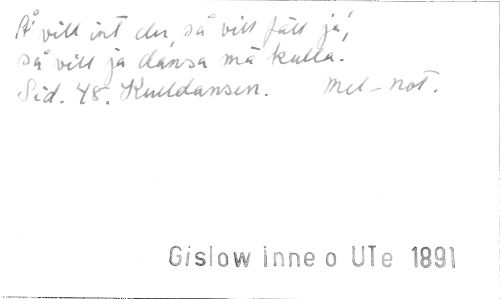 Å vill int du, så vill fäll ja',
så vill ja dansa mä kulla.
Sid. 48. Kulldansen. Mel-not.
Gislow inne o UTe 1891